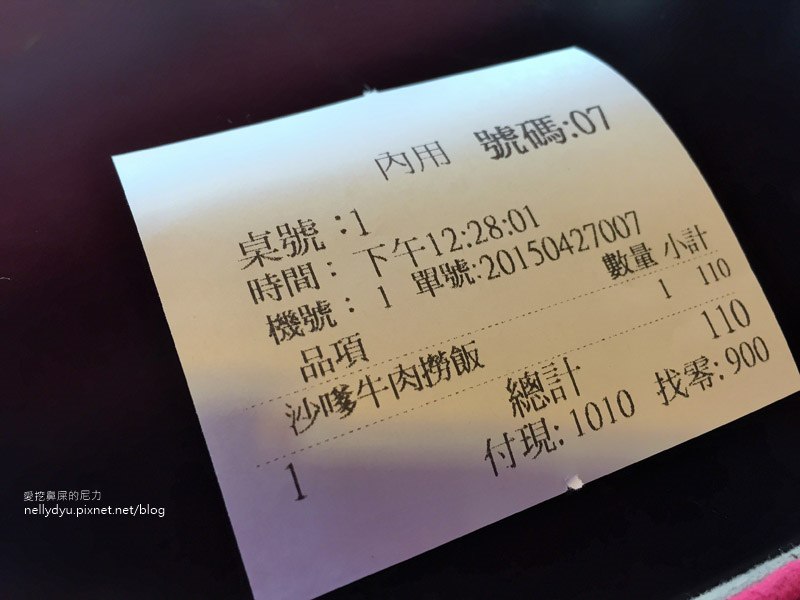 內用 號碼:07
桌號：1
時間：下午12:28:01
機號：1 單號:20150427007
品項 數量 小計
沙嗲牛肉撈飯 1 110
1 總計 110
付現: 1010 找零: 900
愛挖鼻屎的尼力
nellydyu.pixnet.net/blog